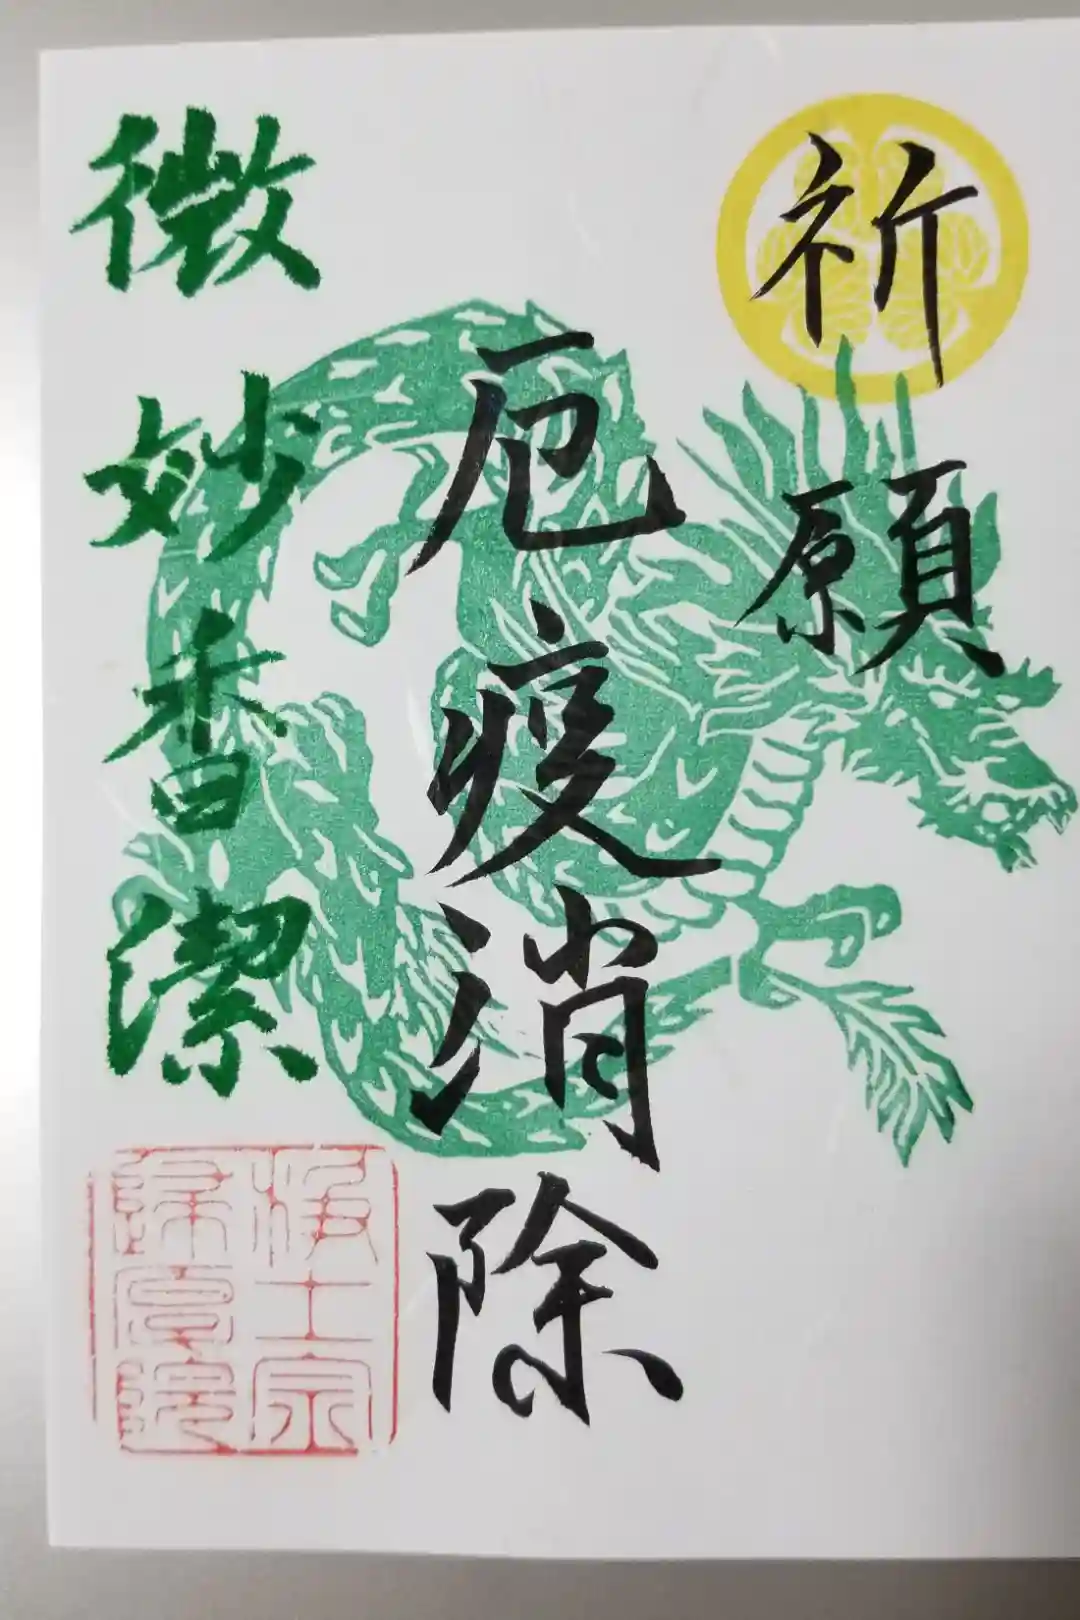 祈願
厄疫消除
微妙香潔
浄土宗
帰命院